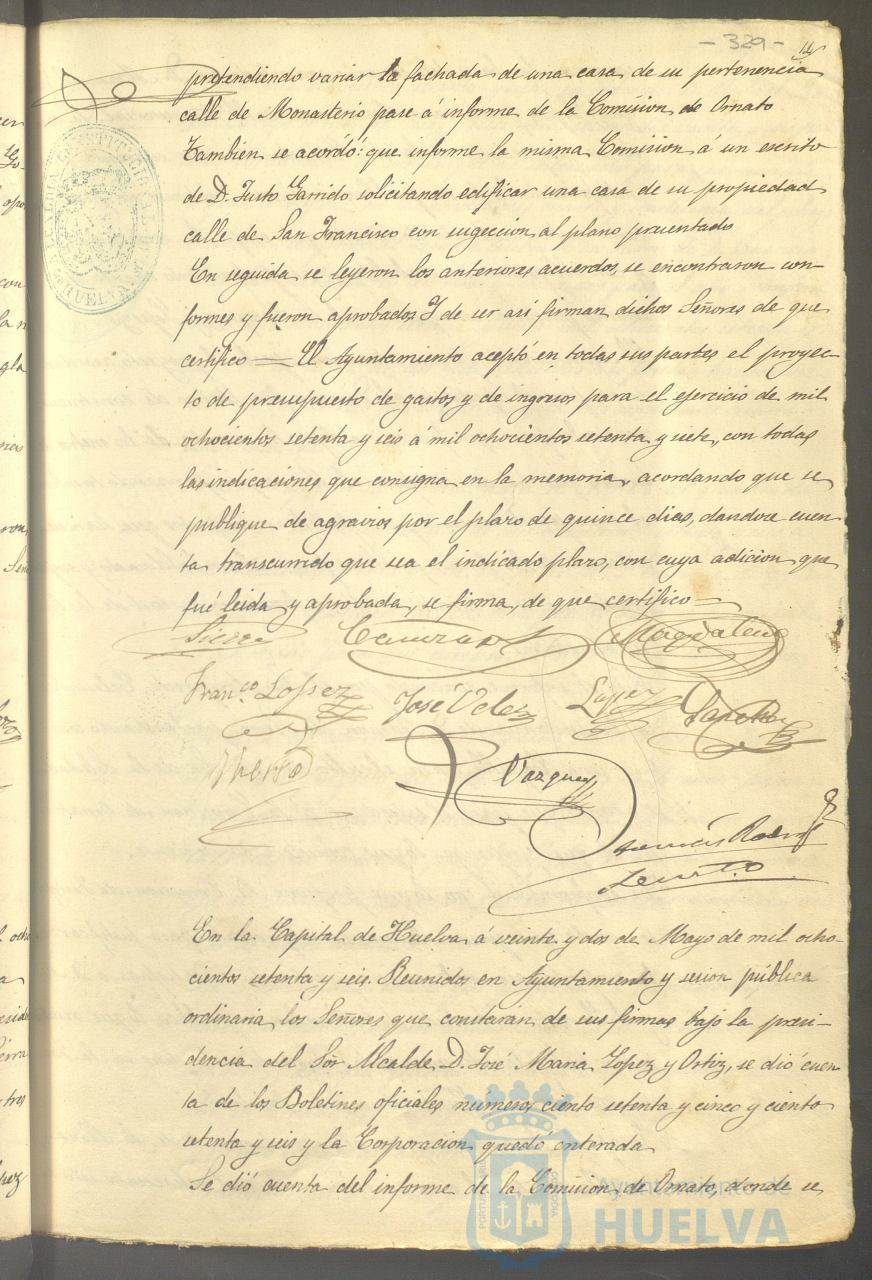 - 329 -
pretendiendo variar la fachada de una casa de su pertenencia
calle de Monasterio pase á informe de la Comision de Ornato
Tambien se acordó: que informe la misma Comision á un escrito
de D. Justo Garrido solicitando edificar una casa de su propiedad
calle de San Francisco con sugeccion al plano presentado
En seguida se leyeron los anteriores acuerdos, se encontraron con-
formes y fueron aprobados. Y de ser asi firman dichos Señores de que
certifico — El Ayuntamiento aceptó en todas sus partes el proyec-
to de presupuesto de gastos y de ingresos para el ejercicio de mil
ochocientos setenta y seis á mil ochocientos setenta y siete, con todas
las indicaciones que consigna en la memoria, acordando que se
publique de agravios por el plazo de quince dias, dandose cuen-
ta transcurrido que sea el indicado plazo, con cuya adicion que
fué leida y aprobada, se firma, de que certifico —
Magdalena
Fran.co Lopez José Velez Lopez Sanchez
Vazquez
En la Capital de Huelva á veinte y dos de Mayo de mil ocho-
cientos setenta y seis. Reunidos en Ayuntamiento y sesion pública
ordinaria los Señores que constaran de sus firmas bajo la presi-
dencia del Sõr Alcalde D. José Maria Lopez y Ortiz, se dió cuen
ta de los Boletines oficiales numeros ciento setenta y cinco y ciento
setenta y seis y la Corporacion quedó enterada
Se dió cuenta del informe de la Comision de Ornato, donde se
Ayuntamiento de
HUELVA